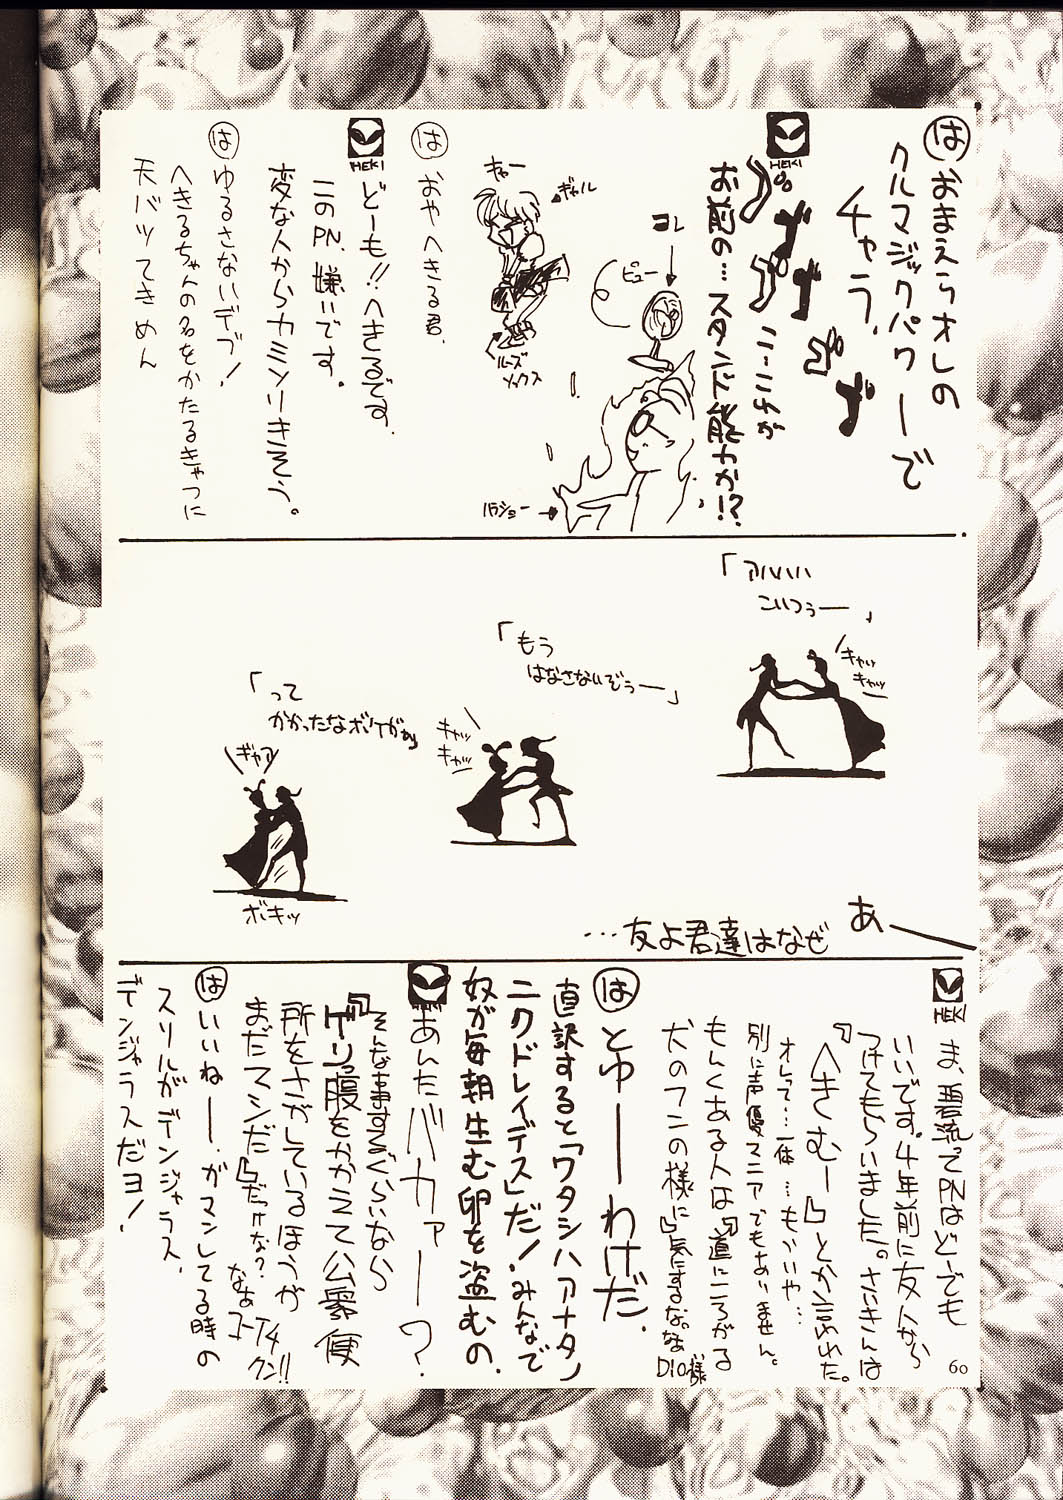 はおまえらオレの
クルマジックパワーで
チャラ、
HEKI
こ…これが
お前の…スタンド能力か!?
コレ
ピュー
ギャル
ルーズ
ソックス
パラショー
は
おやへきる君、
HEKI
どーも!!へきるです、
このPN、嫌いです。
変な人からカミソリきそう。
は
ゆるさないデブ!
へきるちゃんの名をかたるきゃつに
天バツてきめん
「アハハハ
こいつぅー」
キャッ
キャッ
「もう
はなさないぞぅー」
キャッ
キャッ
「って
かかったなボケがぁ」
ギャア
ボキッ
あー
…友よ君達はなぜ
HEKI
ま、碧流ってPNはどーでも
いいです。4年前に友人から
つけてもらいました。さいきんは
『へきむー』とか言われた。
オレって…一体…もういいや…
別に声優マニアでもありません。
もんくある人は『道にころがる
犬のフンの様に』気にするな。なぁ
DIO様
は とゆーーわけだ、
直訳すると「ワタシハアナタノ
ニクドレイデス」だ!みんなで
奴が毎朝生む卵を盗むの、
HEKI
あんたバカァー?
『そんな事するぐらいなら
ゲリ腹をかかえて公衆便
所をさがしているほうが
まだマシだ』だっけな?
なぁ
コーイチ
クン!!
は いいねー、ガマンしてる時の
スリルがデンジャラス、
デンジャラスだヨ!
60